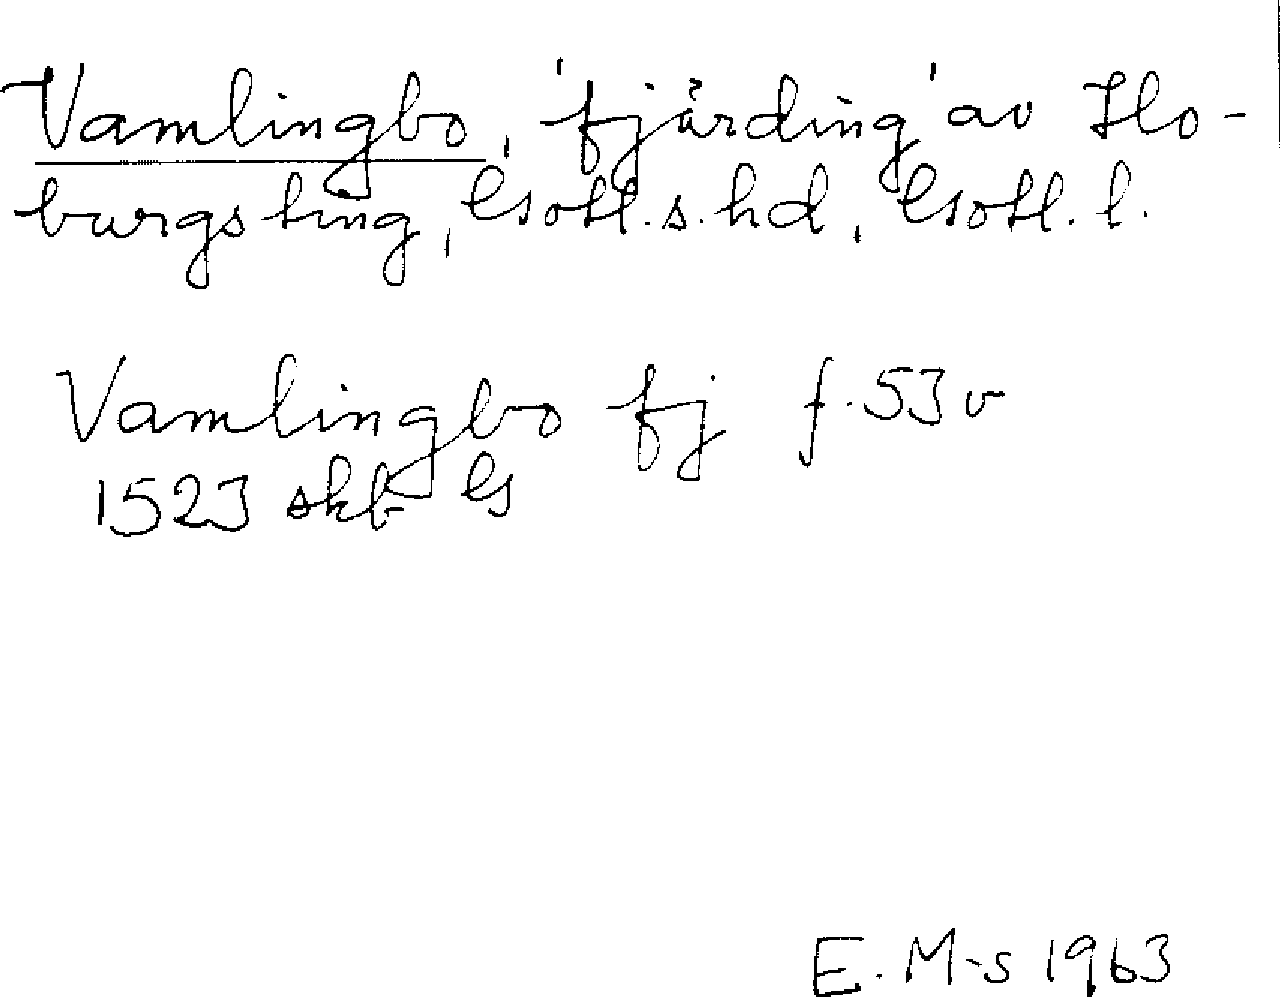 Vamlingbo, 'fjärding' av Ho-
burgs ting, Gotl. s. hd, Gotl. l.
Vamlingbo fj f. 53 v
1523 skb G
E. M-s 1963